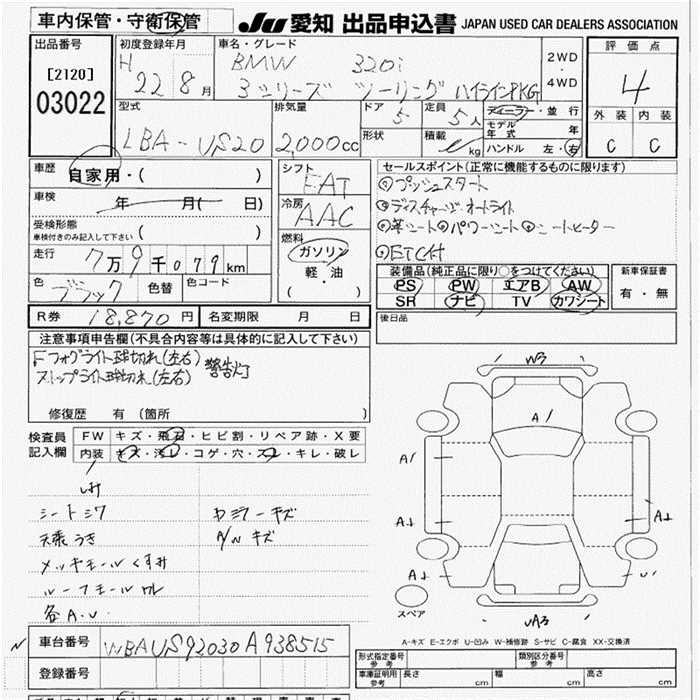 車内保管・守衛保管
JU 愛知 出品申込書 JAPAN USED CAR DEALERS ASSOCIATION
出品番号
[2120]
03022
初度登録年月
H 22 8月
車名・グレード
BMW 320i
3シリーズ ツーリング ハイラインPKG
2WD
・
4WD
評価点
4
外装 内装
C C
型式
LBA-US20
排気量
2,000cc
ドア
5
定員
5人
形状
積載
kg
ディーラー・並行
モデル年式 年
ハンドル 左・右
車歴
自家用・( )
車検
年 月( 日)
受検形態
車検付きのみ記入して下さい ( )
走行
7万9千079km
色
ブラック
色替
色コード
シフト
FAT
冷房
AAC
燃料
ガソリン
軽・油
( )
セールスポイント(正常に機能するものに限ります)
プッシュスタート
ディスチャージ・オートライト
革シート パワーシート シートヒーター
ETC付
装備品(純正品に限り○をつけてください)
PS PW エアB AW
SR ナビ TV カワシート
新車保証書
有・無
R券 18,870円
名変期限 月 日
後日品
注意事項申告欄(不具合内容等は具体的に記入して下さい)
Fフォグライト球切れ(左右)
ストップライト球切れ(左右) 警告灯
修復歴 有(箇所 )
検査員
記入欄
FW キズ・飛石・ヒビ割・リペア跡・X要
内装 キズ・汚レ・コゲ・穴・スレ・キレ・破レ
シートシワ
天張うき
メッキモールくすみ
ルーフモール
各A.U.
ドミラーキズ
A/Wキズ
W3
A/
A/
A↓
A↓
A↓
U'
UA3
スペア
A-キズ E-エクボ U-凹み W-補修跡 S-サビ C-腐食 XX-交換済
車台番号
WBAUS92030A938515
登録番号
形式指定番号
参考
類別区分番号
参考
車庫証明用
参考
長さ cm
幅 cm
高さ cm